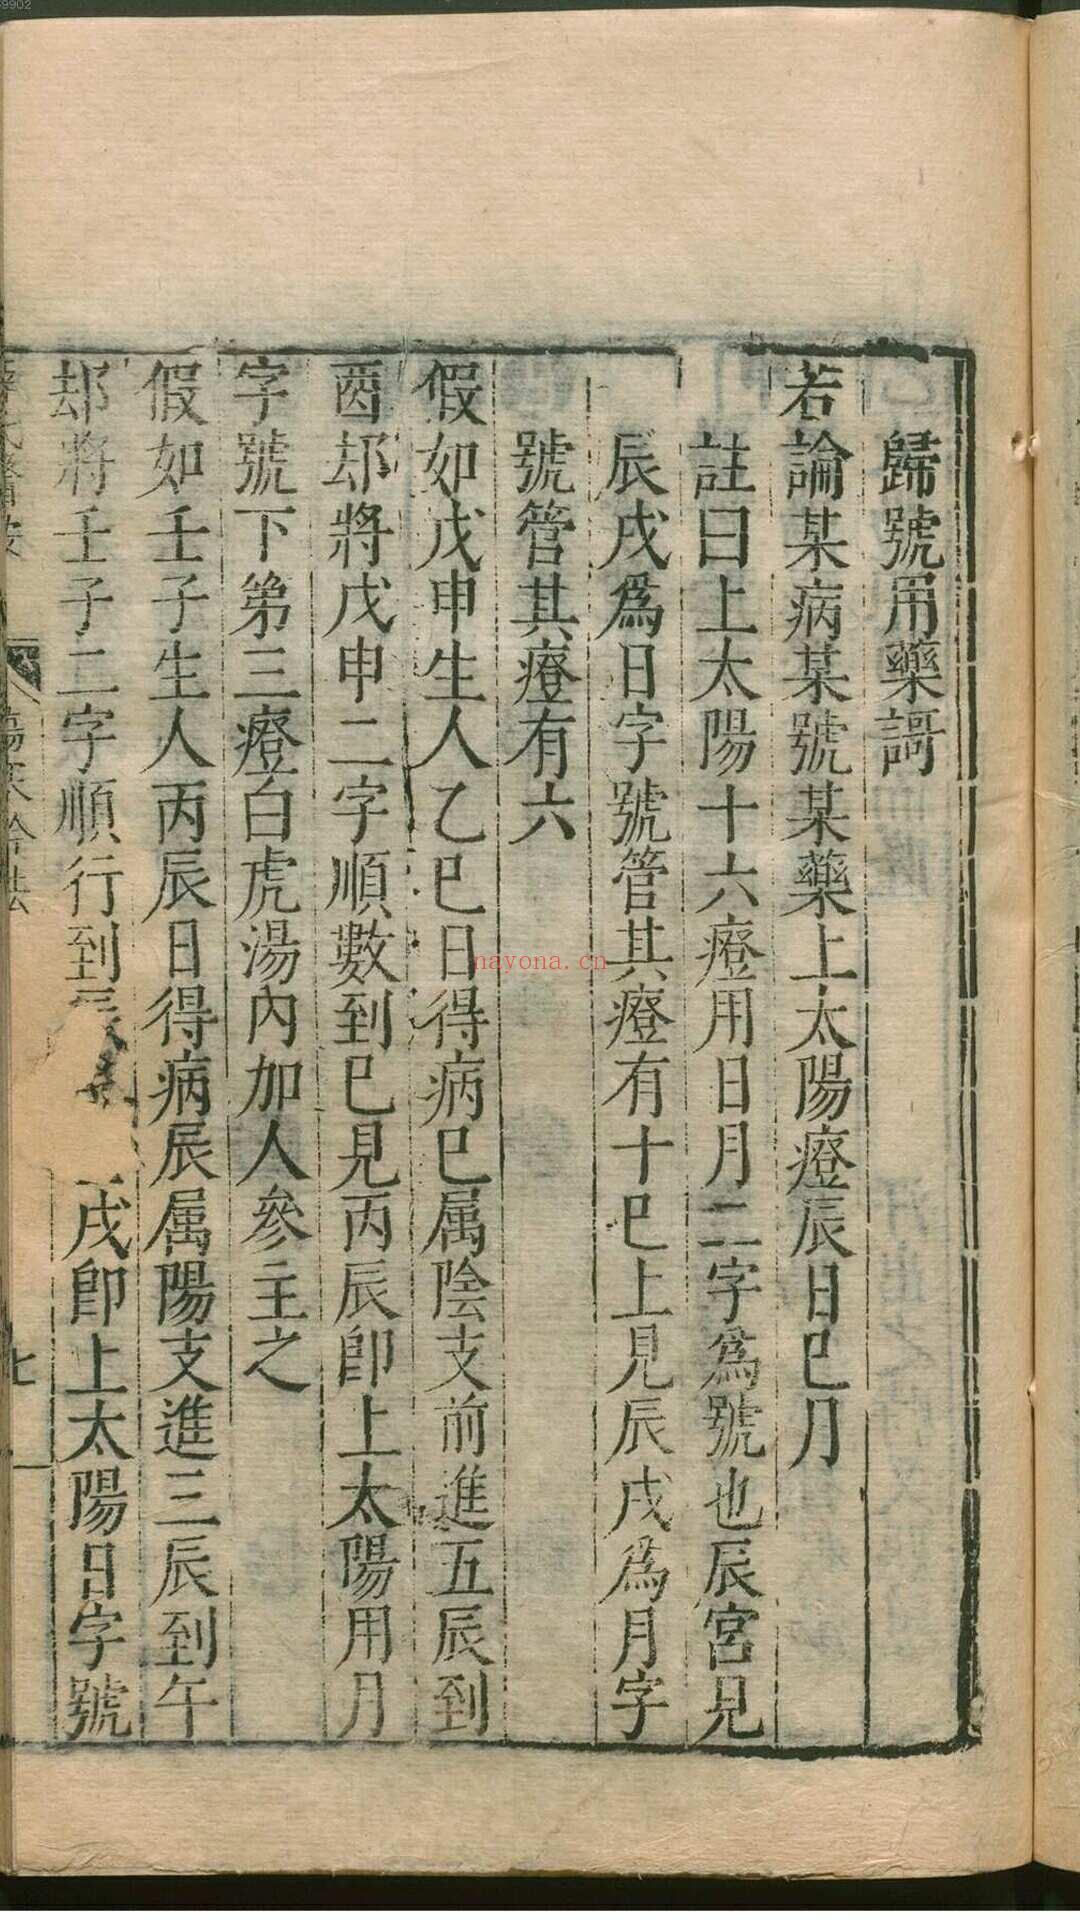 歸號用藥謌
若論某病某號某藥上太陽證辰日巳月
註曰上太陽十六證用日月二字爲號也辰宮見
辰戌爲日字號管其證有十巳上見辰戌爲月字
號管其證有六
假如戊申生人乙巳日得病巳属陰支前進五辰到
酉却將戊申二字順數到巳見丙辰卽上太陽用月
字號下第三證白虎湯內加人參主之
假如壬子生人丙辰日得病辰属陽支進三辰到午
却將壬子二字順行到
戌卽上太陽日字號
七
nayona.cn